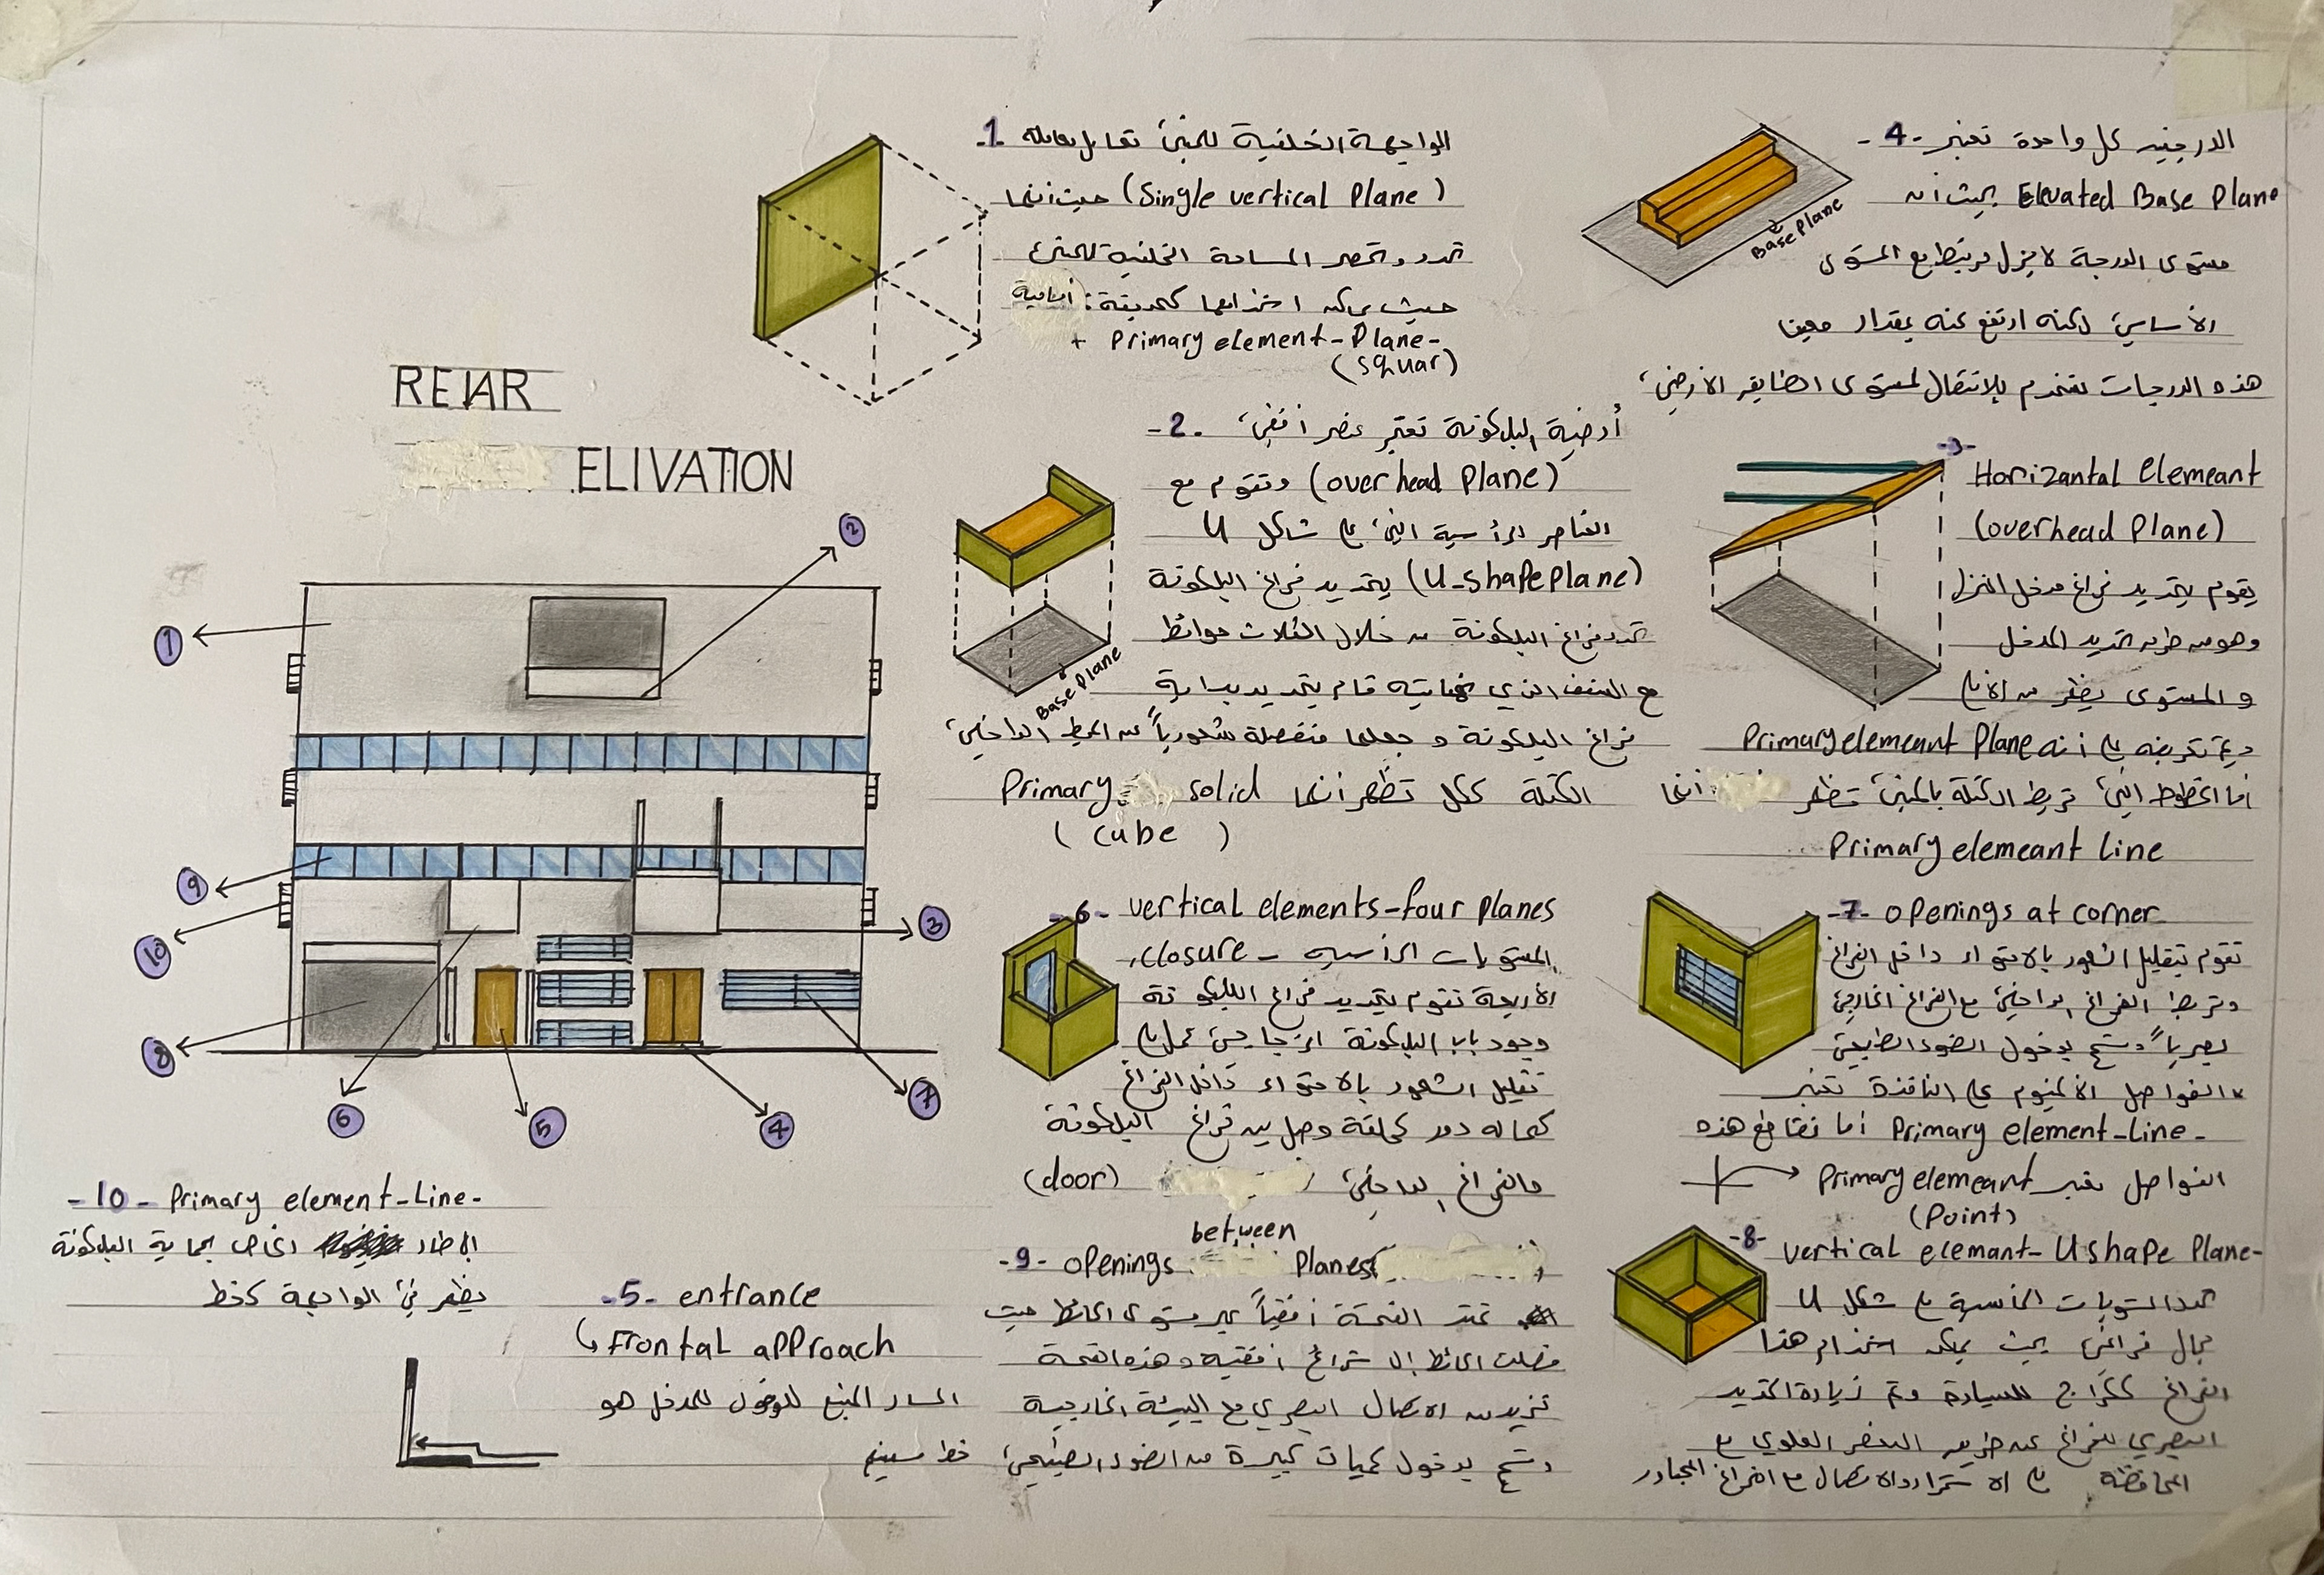 REAR
ELIVATION
1
2
3
4
5
6
7
8
9
10
-1. الواجهة الخلفية للمبنى تعامل معاملة
(Single vertical Plane) حيث أنها
تحدد وتحصر المساحة الخلفية للمبنى
حيث يمكن استخدامها كحديقة: أمامية
+ Primary element-Plane-
(squar)
-2. أرضية البلكونة تعتبر عنصر أفقي
(overhead Plane) وتقوم مع
العناصر الرأسية التي على شكل U
(U-shape plane) بتحديد فراغ البلكونة
تحدد فراغ البلكونة من خلال الثلاث حوائط
مع السقف الذي نهايته قام بتحديد بداية
فراغ البلكونة وجعلها منفصلة شعورياً عن المحيط الداخلي
الكتلة ككل تظهر أنها Primary solid
(cube)
Base Plane
-4- الدرجتين كل واحدة تعتبر
Elevated Base Plane بحيث أن
مستوى الدرجة لا يزل مرتبط مع المستوى
الأساسي لكنه ارتفع عنه بمقدار معين
هذه الدرجات تستخدم للانتقال لمستوى الطابق الأرضي
Base Plane
-3-
Horizantal Elemeant
(overhead Plane)
يقوم بتحديد فراغ مدخل المنزل
وهو من طرق تحديد المدخل
و المستوى يظهر من الأمام
ويتم تعريفه على أنه Primary elemeant Plane
أما الخطوط التي تربط الكتلة بالمبنى تظهر أنها
Primary elemeant Line
-6- vertical elements-four planes
closure - المستويات الرأسية
الأربعة تقوم بتحديد فراغ البلكونة
وجود باب البلكونة الزجاجي عمل على
تقليل الشعور بالاحتواء داخل الفراغ
كما له دور كحلقة وصل بين فراغ البلكونة
والفراغ الداخلي (door)
-7- openings at corner
تقوم بتقليل الشعور بالاحتواء داخل الفراغ
وتربط الفراغ الداخلي مع الفراغ الخارجي
بصرياً وتسمح بدخول الضوء الطبيعي
* الفواصل الألمنيوم على النافذة تعتبر
Primary element-Line- أما تقاطع هذه
الفواصل تعتبر Primary elemeant
(Point)
-8- vertical elemant-U shape Plane-
تحدد المستويات الرأسية على شكل U
مجال فراغي بحيث يمكن استخدام هذا
الفراغ ككراج للسيارة وتم زيادة التحديد
البصري للفراغ عن طريق العنصر العلوي مع
المحافظة على الاستمرار والاتصال مع الفراغ المجاور
between
-9- openings Planes
تمتد الفتحة أفقياً عبر مستوى الحائط حيث
فصلت الحائط إلى شرائح أفقية وهذه الفتحة
تزيد من الاتصال البصري مع البيئة الخارجية
وتسمح بدخول كميات كبيرة من الضوء الطبيعي
-10- Primary element-Line-
الإطار الخاص بحماية البلكونة
يظهر في الواجهة كخط
-5- entrance
↳ Frontal approach
المسار المتبع للوصول للمدخل هو
خط مستقيم